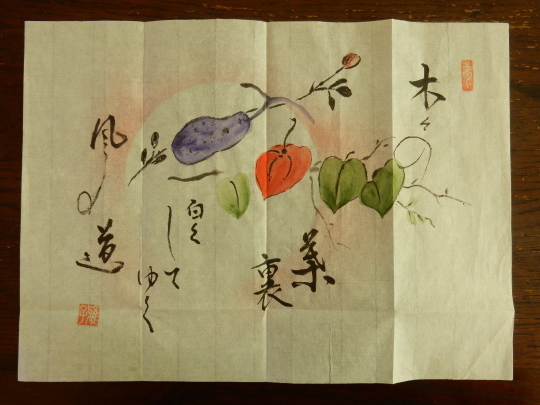 木々
葉
裏
白く
して
ゆく
風の
道